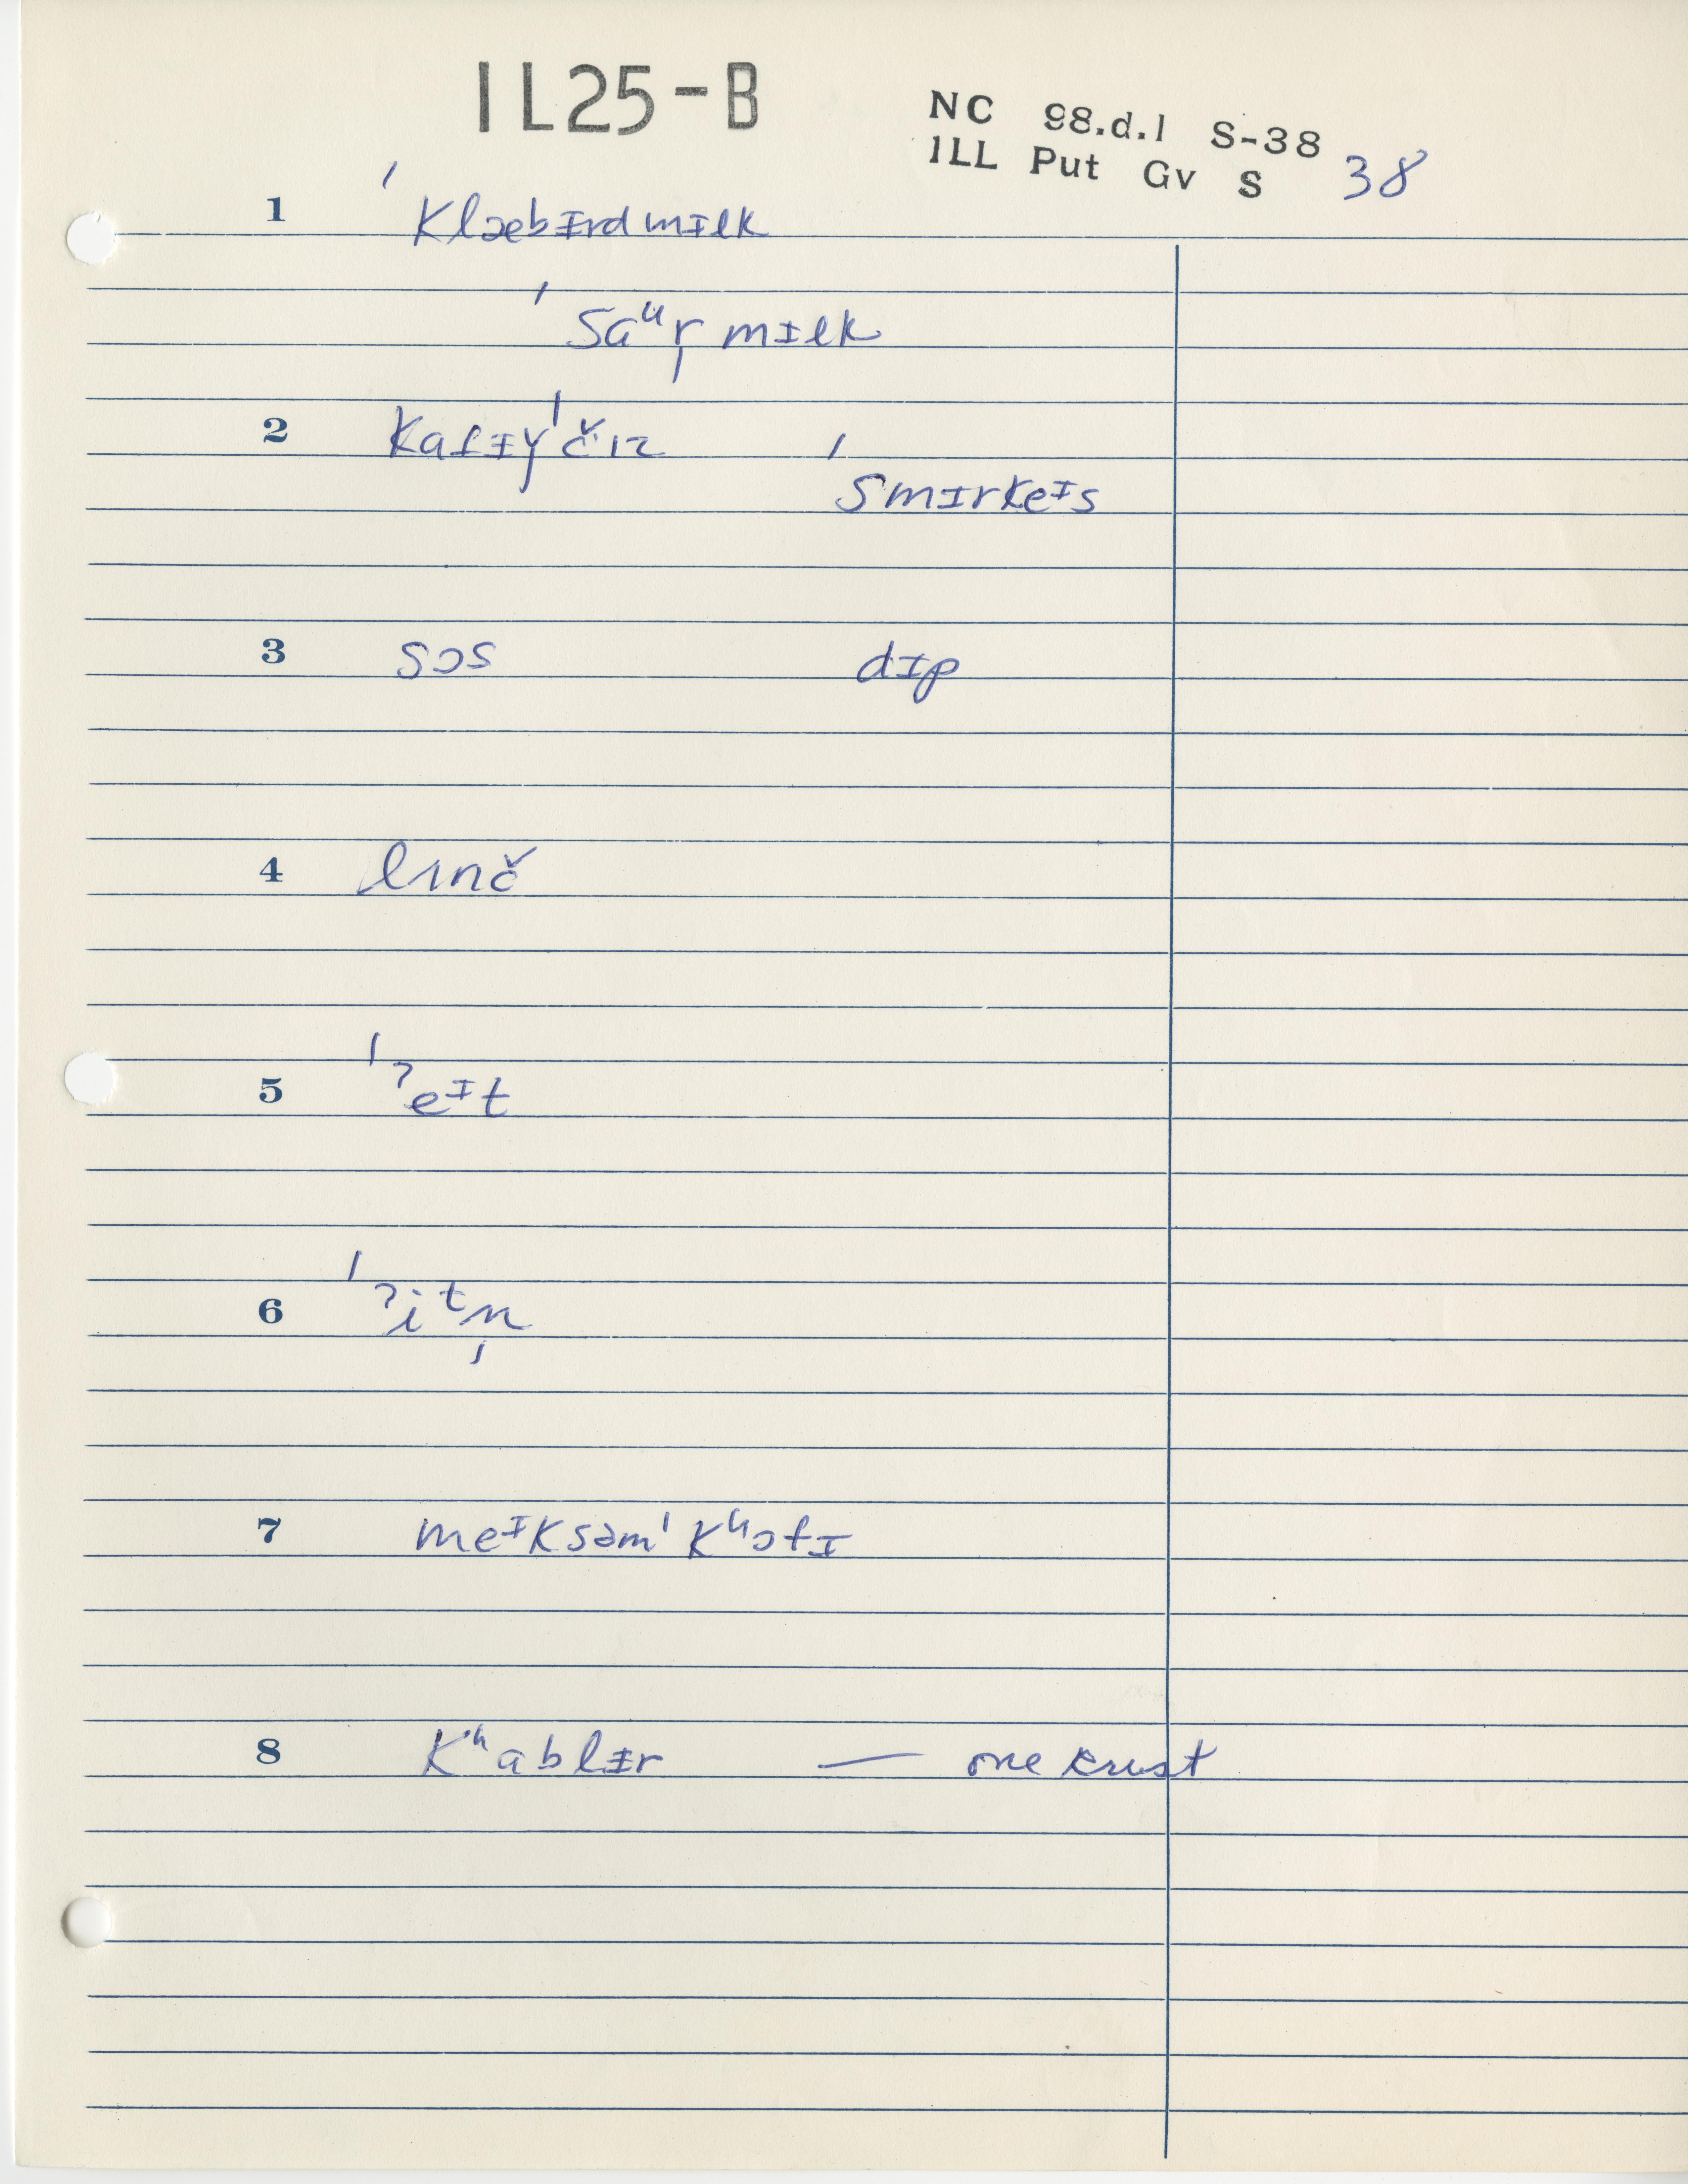 IL25-B
NC 98.d.1 S-38
ILL Put Gv S 38
1 ˈklæbɪrd mɪlk
ˈsaᵘr̩ mɪlk
2 kafɪyˈčiz
ˈsmɪrkeᶦs
3 sɔs dɪp
4 lʌnč
5 ˈˀeᶦt
6 ˈˀiᵗn̩
7 meᶦksəmˈkʰɔfɪ
8 kʰablɪr — one krust